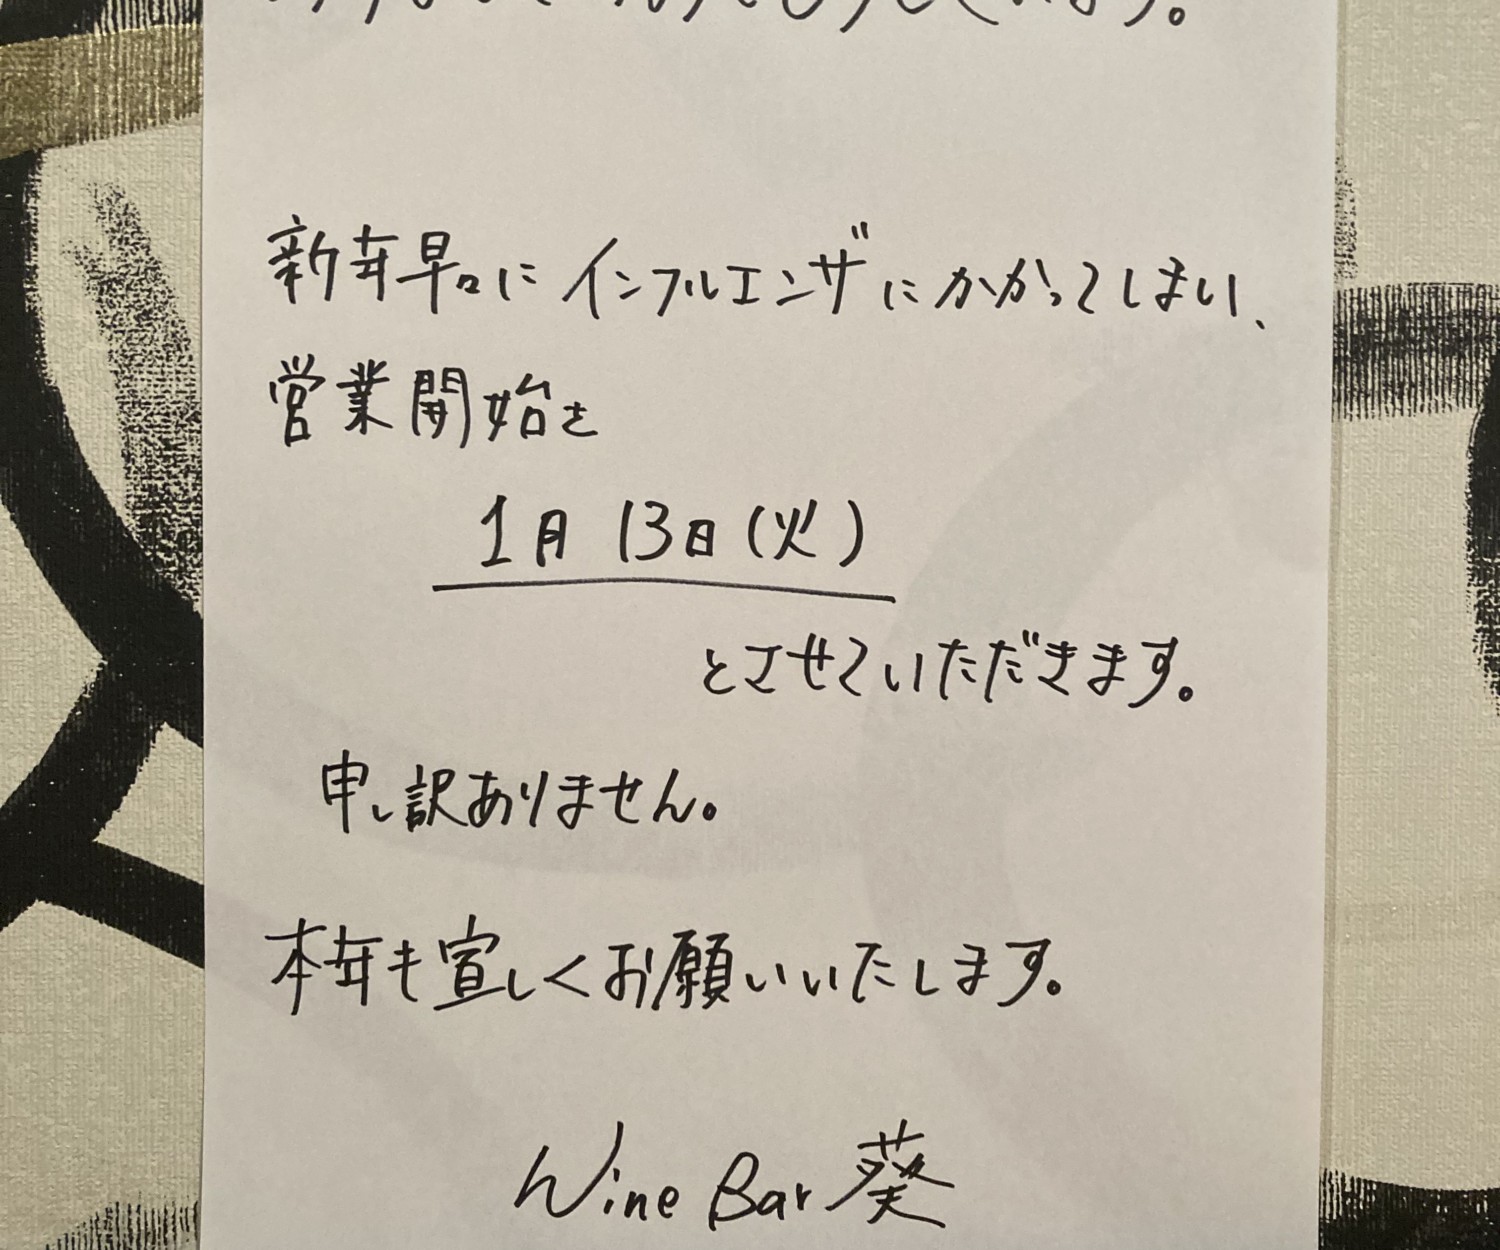 新年早々に インフルエンザにかかってしまい、
営業開始を
1月 13日(火)
とさせていただきます。
申し訳ありません。
本年も宜しくお願いいたします。
Wine Bar 葵